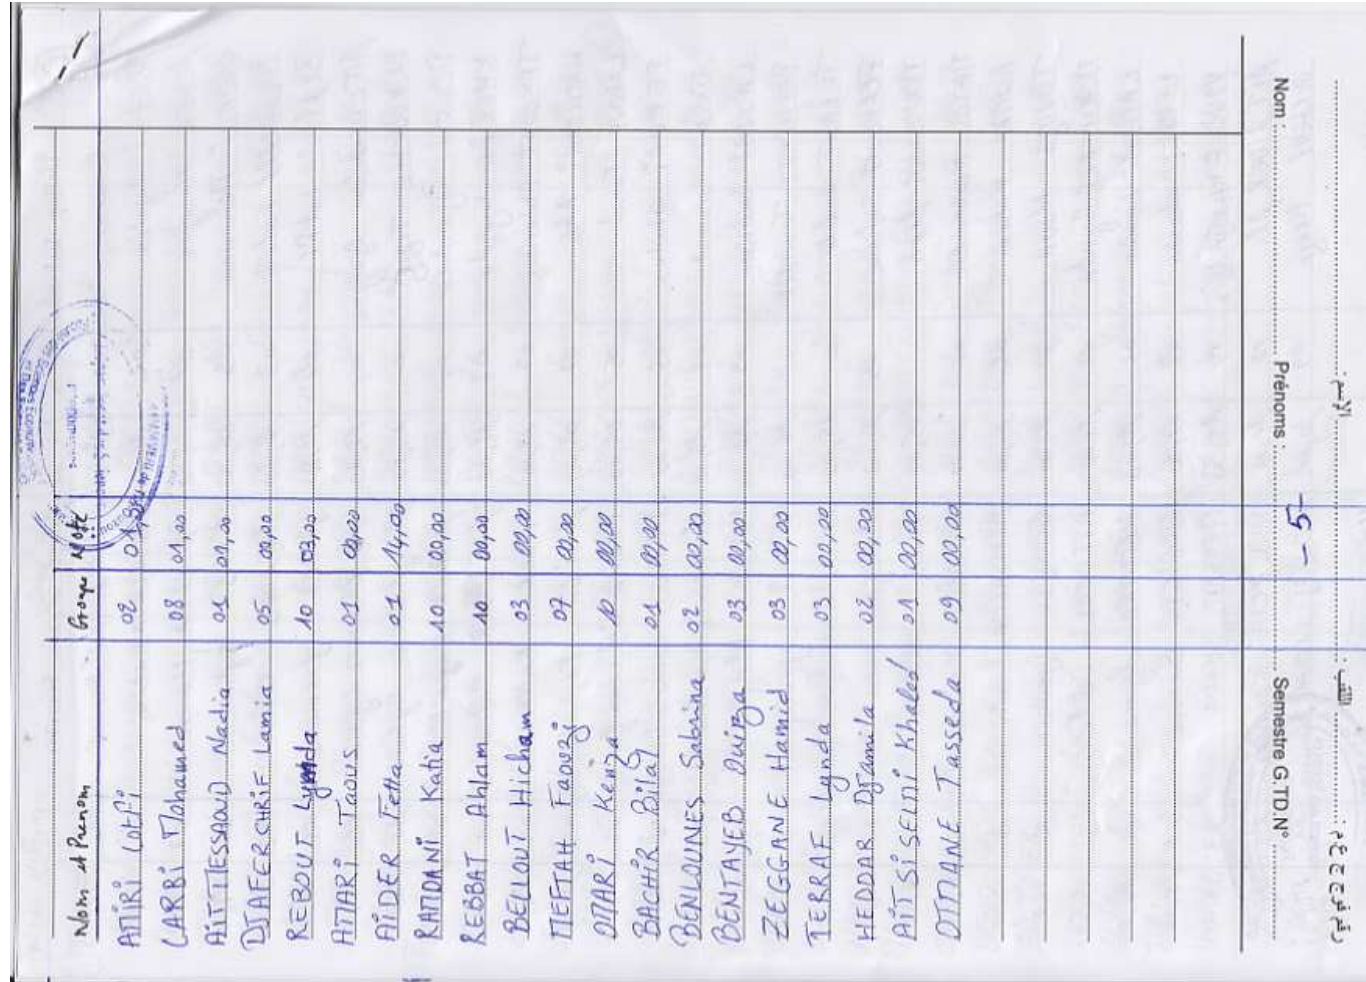 Nom et Prenom Groupe Note
AMIRI Lotfi 02
LARBI Mohamed 08 01,00
AIT MESSAOUD Nadia 01 01,00
DJAFER CHRIF Lamia 05 00,00
REBOUT Lynda 10 03,00
AMARI Taous 01 00,00
AIDER Fetta 01 14,00
RAMDANI Katia 10 00,00
REBBAT Ahlam 10 00,00
BELLOUT Hicham 03 00,00
MEFTAH Faouzi 07 00,00
OMARI Kenza 10 00,00
BACHIR Bilal 01 00,00
BENLOUNES Sabrina 02 00,00
BENTAYEB Ouiza 03 00,00
ZEGGANE Hamid 03 00,00
TERRAF Lynda 03 00,00
HEDDAR Djamila 02 00,00
AIT SI SEMI Khaled 01 00,00
OTMANE Tasseda 09 00,00
- 5 -
Nom : Prénoms : Semestre G.TD.N°
اللقب : الاسم :